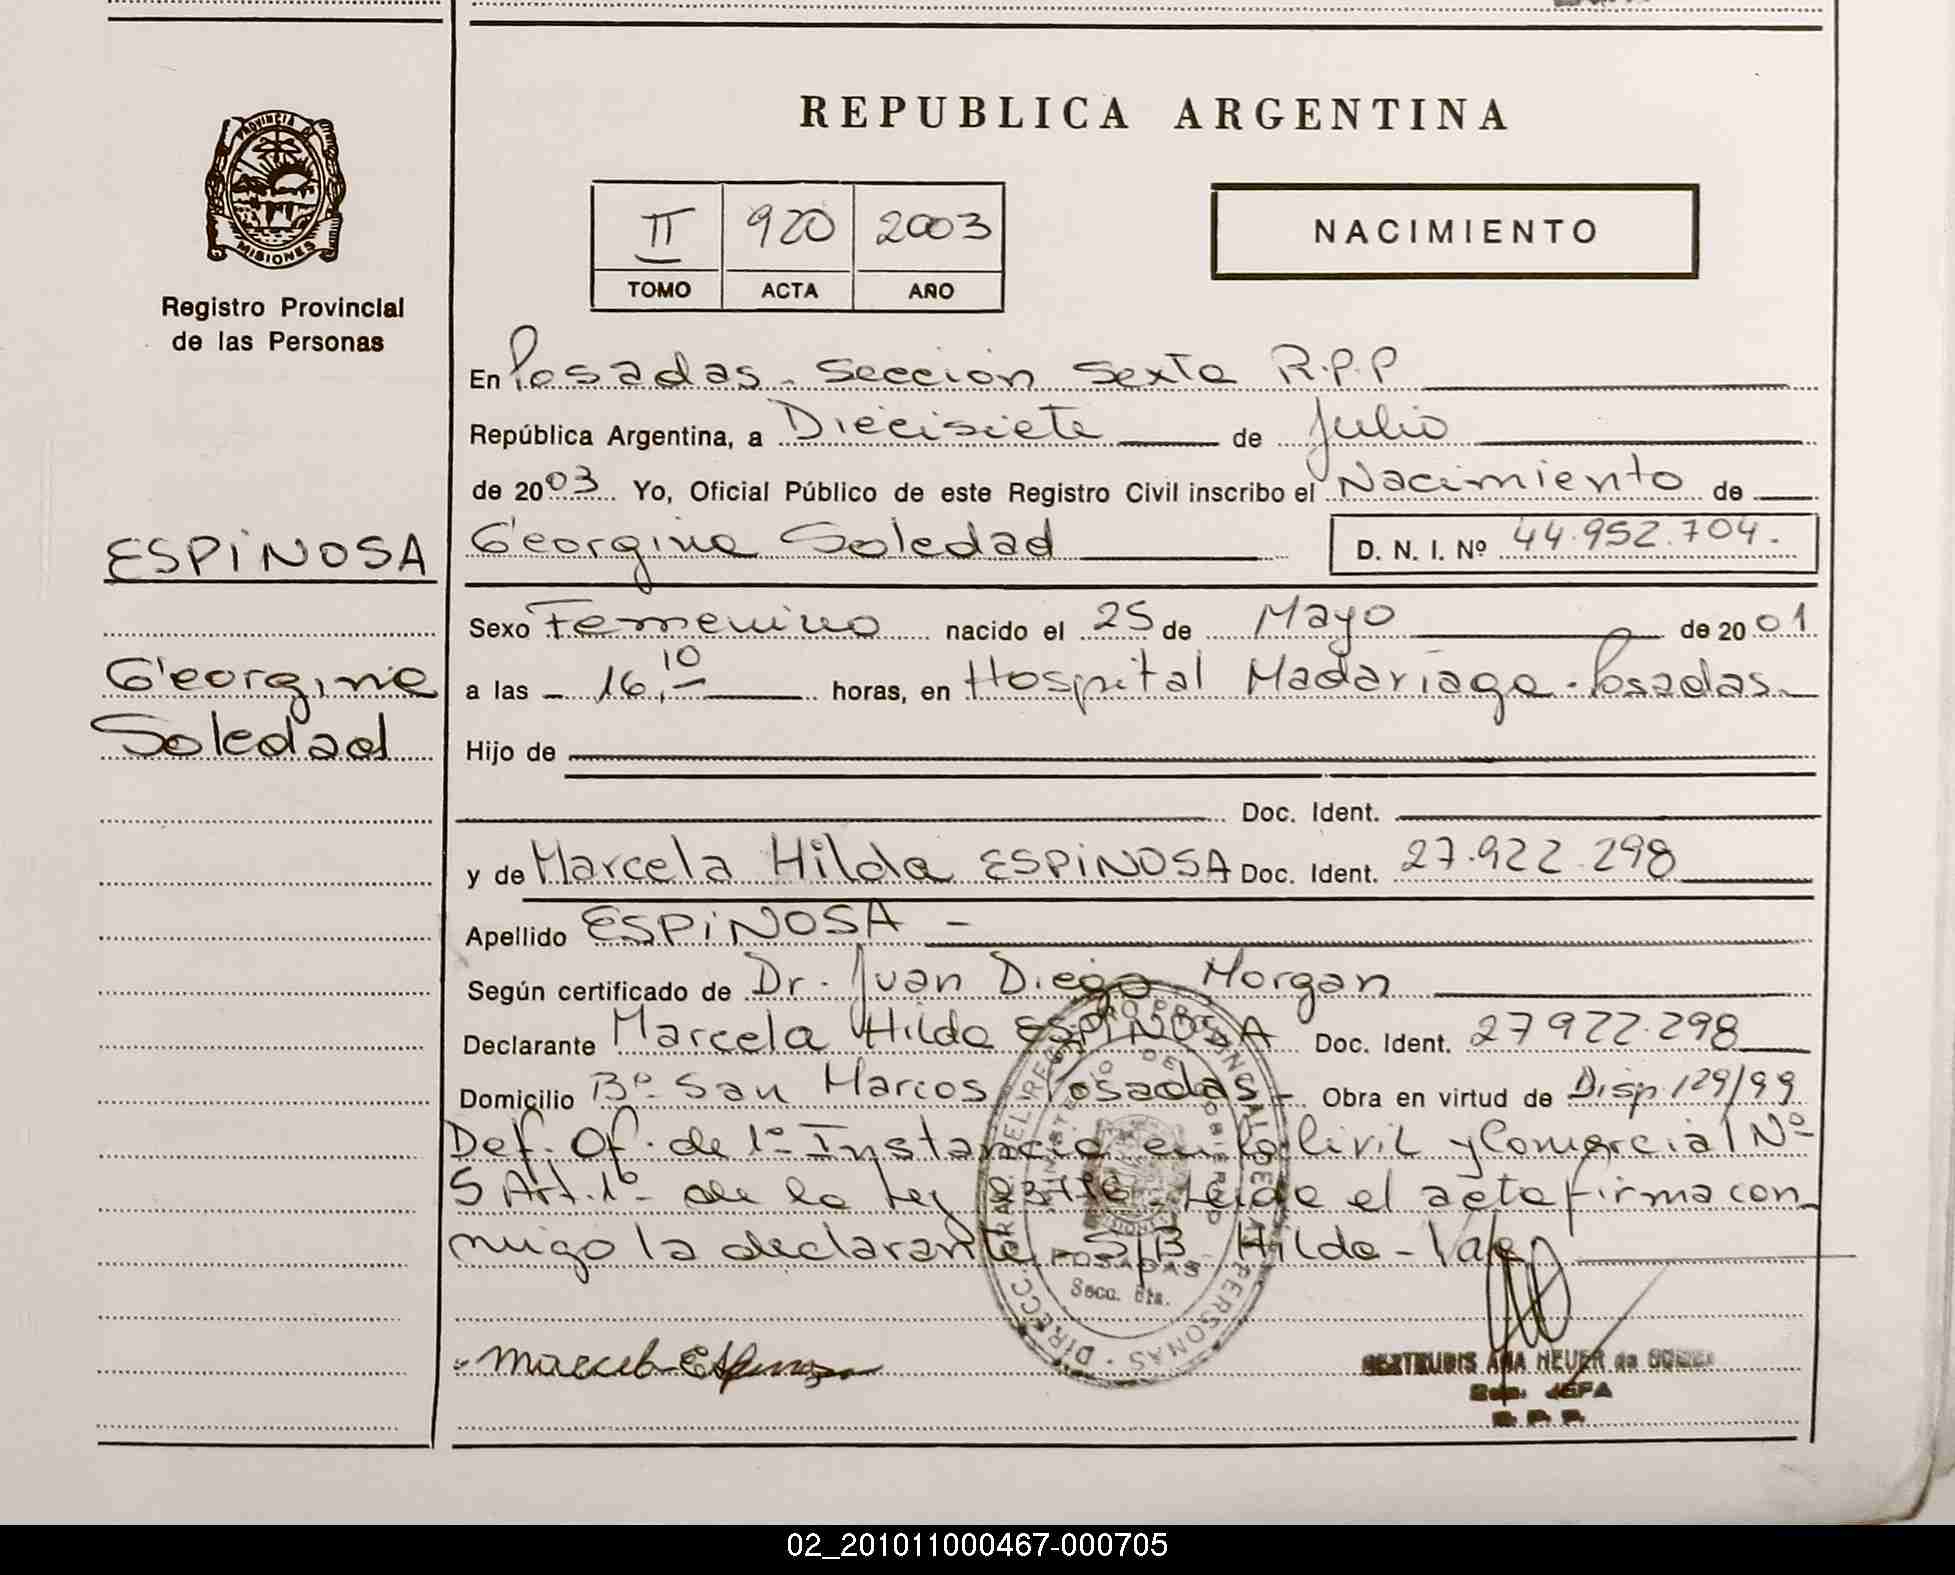 REPUBLICA ARGENTINA
PROVINCIA DE
MISIONES
Registro Provincial
de las Personas
II 920 2003
TOMO ACTA AÑO
NACIMIENTO
En Posadas. Sección Sexta R.P.P
República Argentina, a Diecisiete de Julio
de 2003 Yo, Oficial Público de este Registro Civil inscribo el Nacimiento de
ESPINOSA
Georgina Soledad D. N. I. Nº 44.952.704.
Sexo Femenino nacido el 25 de Mayo de 2001
Georgina
Soledad
a las 16,10 horas, en Hospital Madariaga - Posadas.
Hijo de
Doc. Ident.
y de Marcela Hilda ESPINOSA Doc. Ident. 27.922.298
Apellido ESPINOSA -
Según certificado de Dr. Juan Diego Morgan
Declarante Marcela Hilda ESPINOSA Doc. Ident. 27922.298
Domicilio Bº San Marcos Posadas - Obra en virtud de Disp. 129/99
Def. Of. de 1º Instancia en lo Civil y Comercial Nº
5 Art. 1º de la Ley Leida el acta firma con
migo la declarante S/B Hilda - Vale
POSADAS
Secc. 6ta.
Marcela Espinosa
GERTRUDIS ANA HEUER de
JEFA
R. P. P.
02_201011000467-000705